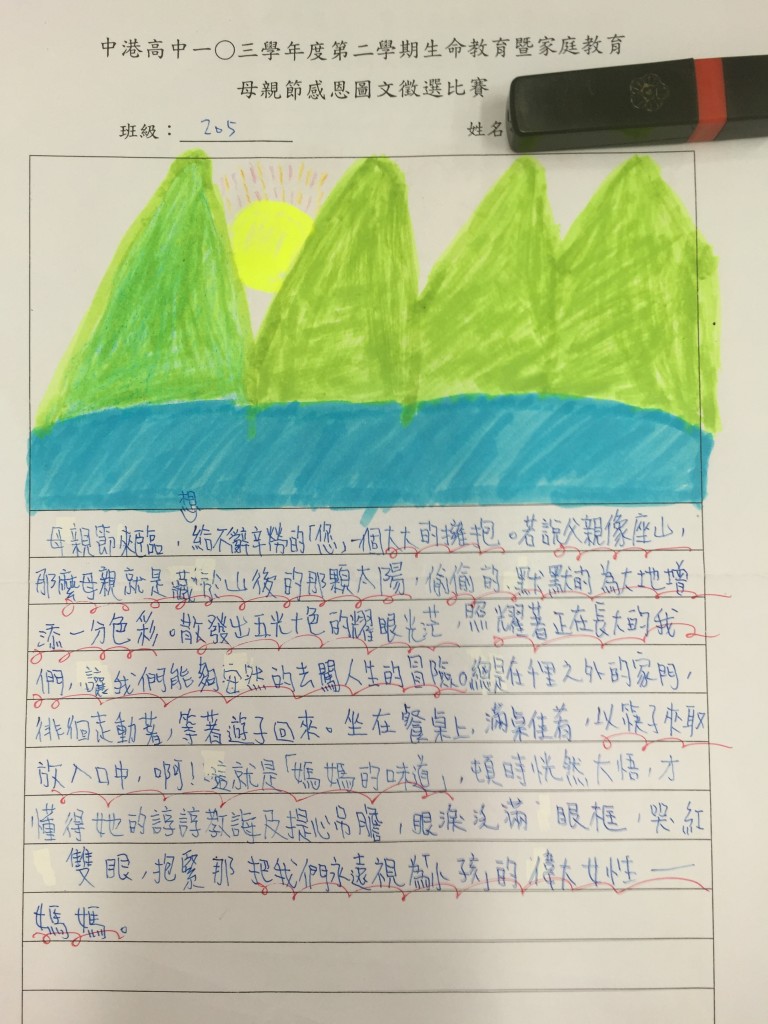 中港高中一〇三學年度第二學期生命教育暨家庭教育
母親節感恩圖文徵選比賽
班級：205 姓名
想
母親節來臨，給不辭辛勞的「您」一個大大的擁抱。若說父親像座山，
那麼母親就是藏於山後的那顆太陽，偷偷的、默默的為大地增
添一分色彩。散發出五光十色的耀眼光茫，照耀著正在長大的我
們，讓我們能夠安然的去闖人生的冒險。總是在千里之外的家門，
徘徊走動著，等著遊子回來。坐在餐桌上，滿桌佳肴，以筷子夾取
放入口中，啊！這就是「媽媽的味道」，頓時恍然大悟，才
懂得她的諄諄教誨及提心吊膽，眼淚洗滿眼框，哭紅
雙眼，抱緊那把我們永遠視為「小孩」的偉大女性——
媽媽。